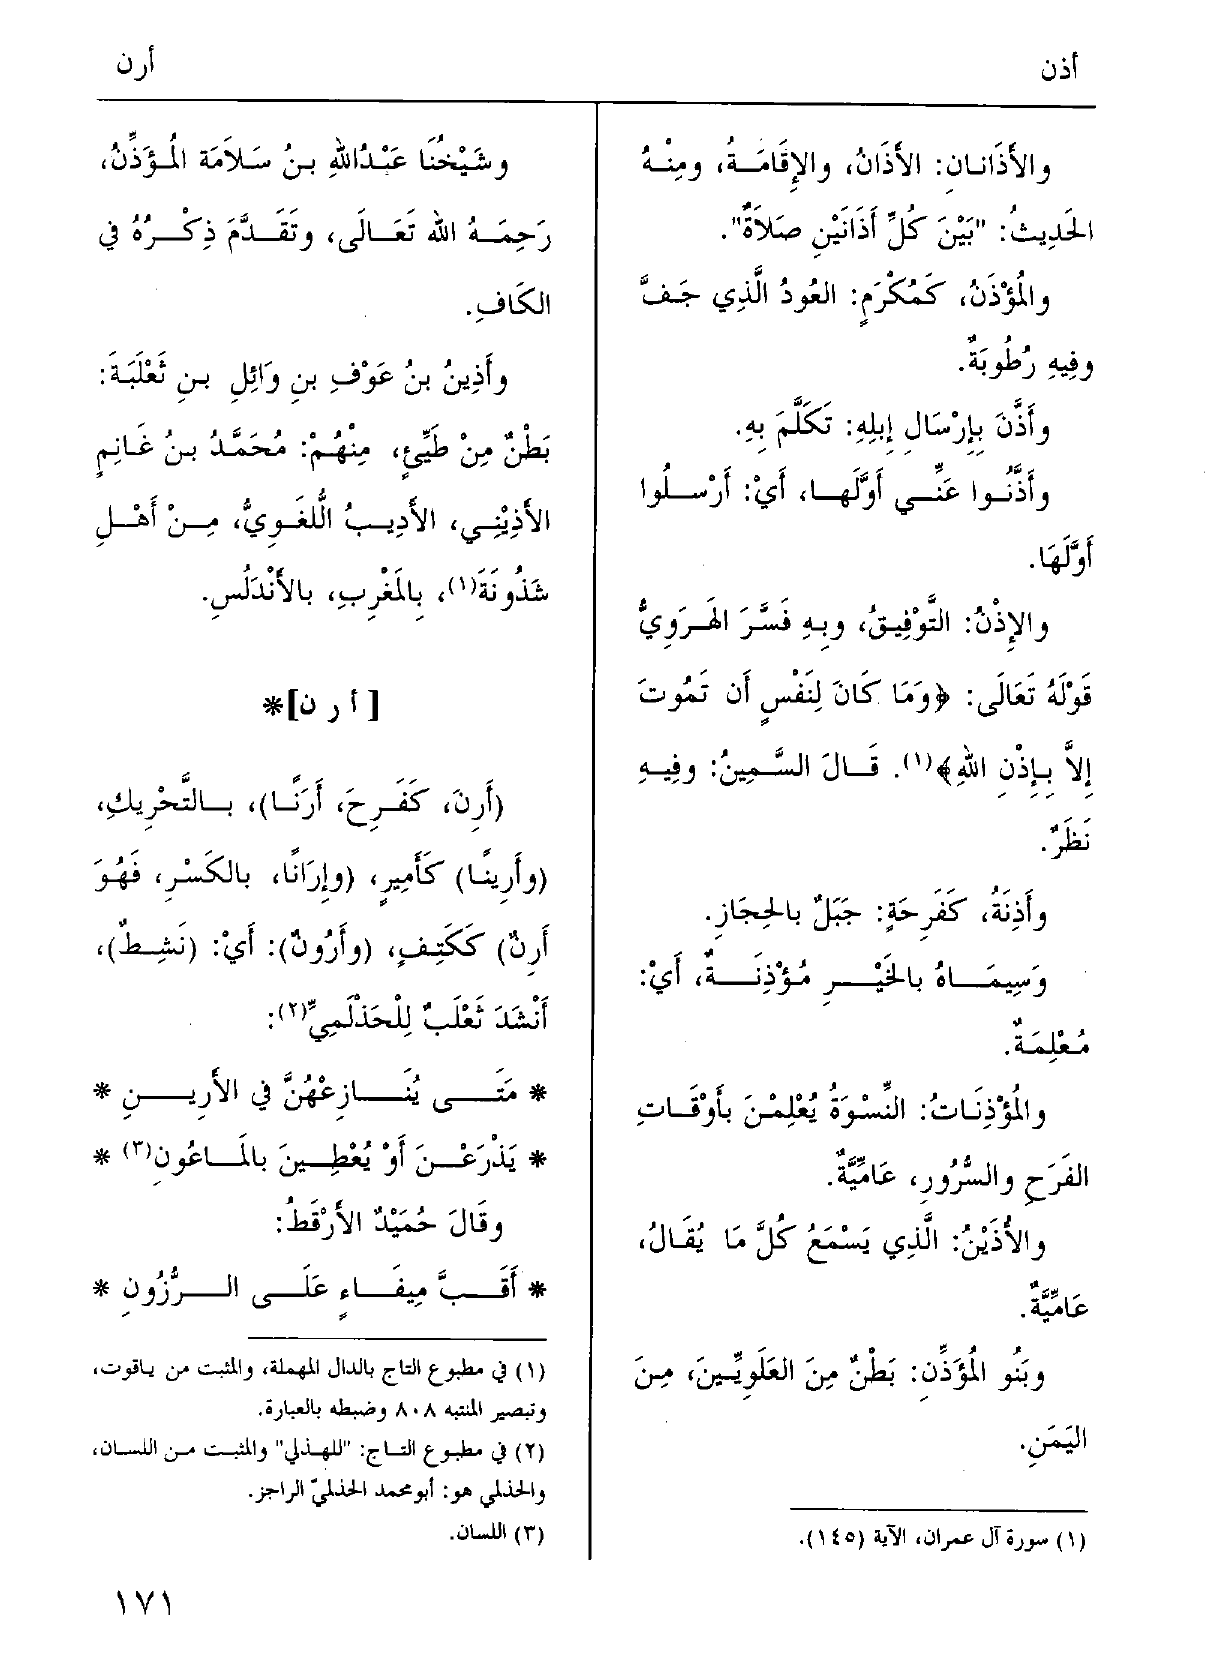 أذن
أرن
والأَذَانانِ: الأَذَانُ، والإِقَامَةُ، ومِنْهُ
الحَدِيثُ: "بَيْنَ كُلِّ أَذَانَيْنِ صَلاَةٌ".
والمُؤْذَنُ، كَمُكْرَمٍ: العُودُ الَّذِي جَفَّ
وفِيهِ رُطُوبَةٌ.
وأَذَّنَ بِإِرْسَالِ إِبِلِهِ: تَكَلَّمَ بِهِ.
وأَذَّنُوا عَنِّي أَوَّلَها، أَيْ: أَرْسلُوا
أَوَّلَهَا.
والإِذْنُ: التَّوْفِيقُ، وبِهِ فَسَّرَ الهَرَوِيُّ
قَوْلَهُ تَعَالَى: ﴿وَمَا كَانَ لِنَفْسٍ أَن تَمُوتَ
إِلاَّ بِإِذْنِ اللهِ﴾(١). قَالَ السَّمِينُ: وفِيهِ
نَظَرٌ.
وأَذِنَةُ، كَفَرِحَةٍ: جَبَلٌ بالحِجَازِ.
وَسِيمَاهُ بالخَيْرِ مُؤْذِنَةٌ، أَيْ:
مُعْلِمَةٌ.
والمُؤْذِنَاتُ: النِّسْوَةُ يُعْلِمْنَ بأَوْقَاتِ
الفَرَحِ والسُّرُورِ، عَامِّيَّةٌ.
والأُذَيْنُ: الَّذِي يَسْمَعُ كُلَّ مَا يُقَالُ،
عَامِّيَّةٌ.
وبَنُو المُؤَذِّنِ: بَطْنٌ مِنَ العَلَوِيِّينَ، مِنَ
اليَمَنِ.
(١) سورة آل عمران، الآية (١٤٥).
وشَيْخُنَا عَبْدُاللهِ بنُ سَلاَمَة المُؤَذِّنُ،
رَحِمَهُ الله تَعَالَى، وتَقَدَّمَ ذِكْرُهُ في
الكَافِ.
وأَذِينُ بنُ عَوْفِ بنِ وَائِلِ بنِ ثَعْلَبَةَ:
بَطْنٌ مِنْ طَيِّئٍ، مِنْهُمْ: مُحَمَّدُ بنُ غَانِمٍ
الأَذِيْنِي، الأَدِيبُ اللُّغَوِيُّ، مِنْ أَهْلِ
شَذُونَةَ(١)، بِالمَغْرِبِ، بالأَنْدَلُسِ.
[أ ر ن]*
(أَرِنَ، كَفَرِحَ، أَرَنًا)، بالتَّحْرِيكِ،
(وأَرِينًا) كَأَمِيرٍ، (وإِرَانًا، بالكَسْرِ، فَهُوَ
أَرِنٌ) كَكَتِفٍ، (وأَرُونٌ): أَيْ: (نَشِطٌ)،
أَنْشَدَ ثَعْلَبٌ لِلْحَذْلَمِيِّ(٢):
* مَتَى يُنَازِعْهُنَّ في الأَرِينِ *
* يَذْرَعْنَ أَوْ يُعْطِينَ بالمَاعُونِ(٣) *
وقَالَ حُمَيْدٌ الأَرْقَطُ:
* أَقَبَّ مِيفَاءٍ عَلَى الرُّزُونِ *
(١) في مطبوع التاج بالدال المهملة، والمثبت من ياقوت،
وتبصير المنتبه ٨٠٨ وضبطه بالعبارة.
(٢) في مطبوع التاج: "للهذلي" والمثبت من اللسان،
والحذلمي هو: أبومحمد الحذلميّ الراجز.
(٣) اللسان.
١٧١